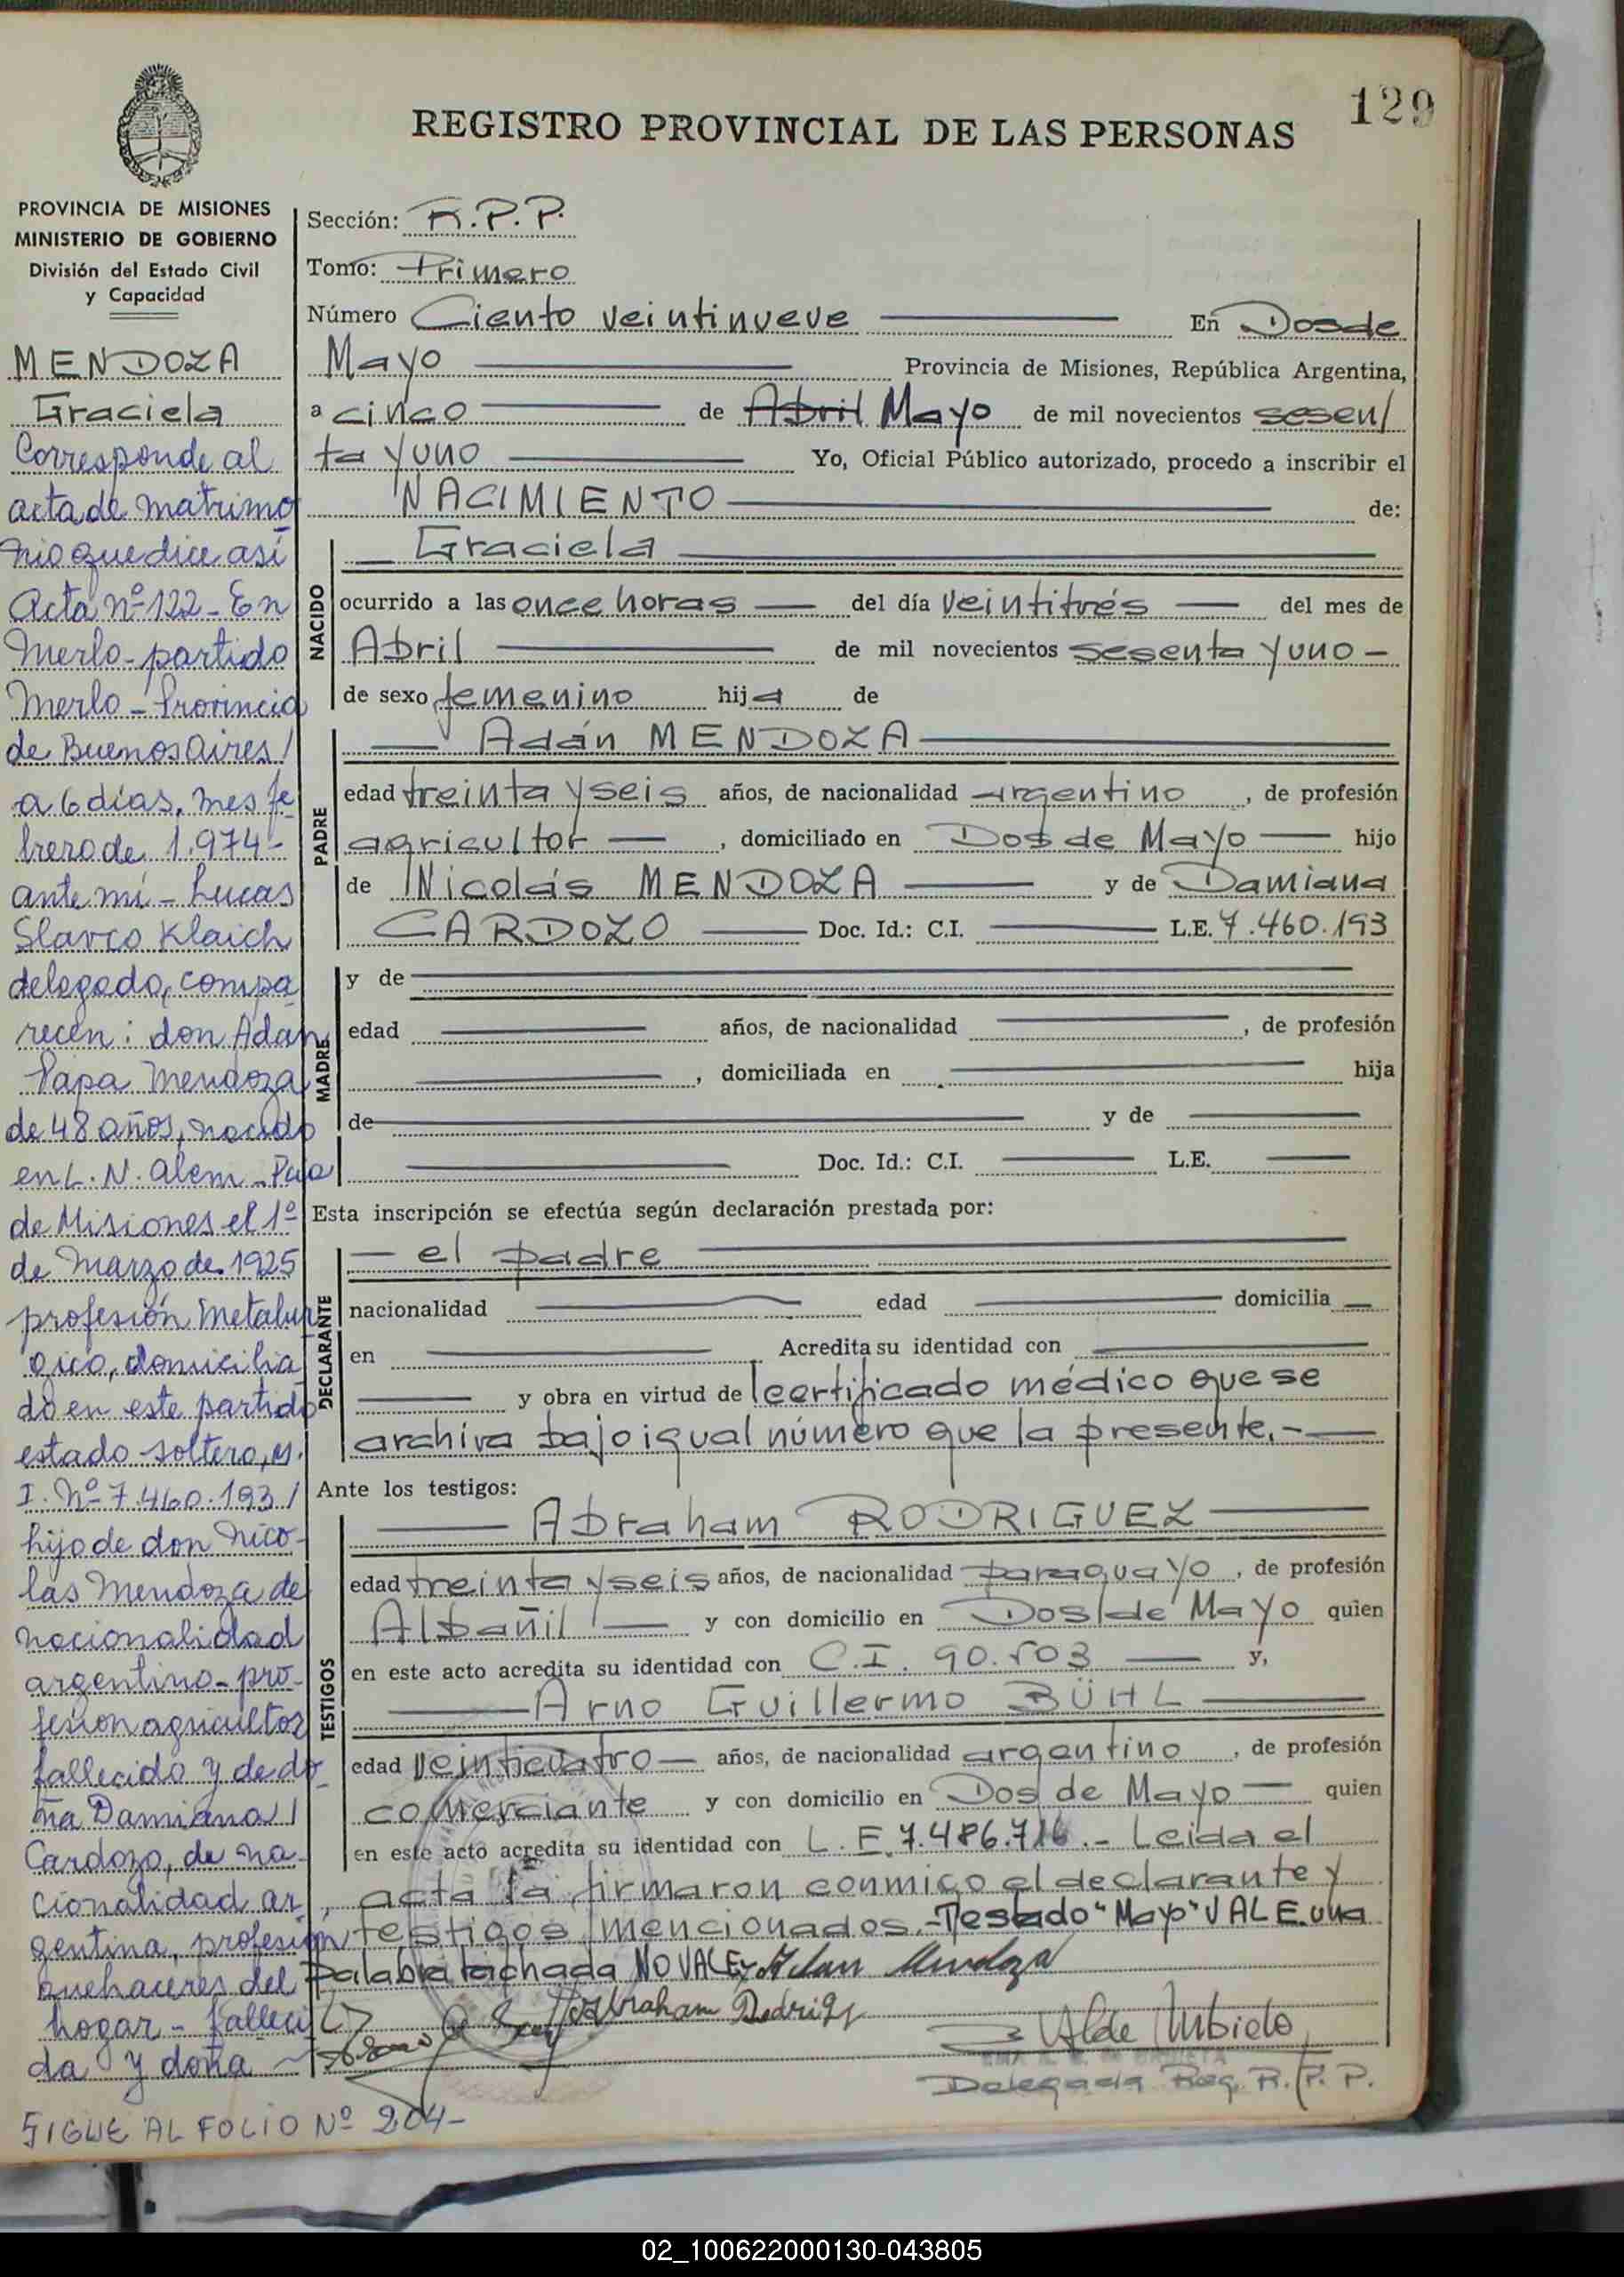 129
REGISTRO PROVINCIAL DE LAS PERSONAS
PROVINCIA DE MISIONES
MINISTERIO DE GOBIERNO
División del Estado Civil
y Capacidad
MENDOZA
Graciela
Corresponde al
acta de matrimo
nio que dice así
Acta Nº 122 - En
Merlo - partido
Merlo - Provincia
de Buenos Aires /
a 6 días, mes fe
brero de 1.974 -
ante mi - Lucas
Slavco Klaich
delegado, compa
recen: don Adan
Papa Mendoza
de 48 años, nacido
en L. N. Alem - Pcia
de Misiones el 1º
de Marzo de 1925
profesión Metalur
gico, domicilia
do en este partido
estado soltero, M.
I. Nº 7.460.193 /
hijo de don Nico-
las Mendoza de
nacionalidad
argentino - pro-
fesion agricultor
fallecido y de do
ña Damiana /
Cardozo, de na-
cionalidad ar
gentina, profesion
quehaceres del
hogar - falleci
da y doña -
SIGUE AL FOLIO Nº 204-
Sección: R.P.P.
Tomo: Primero
Número Ciento veintinueve En Dos de
Mayo Provincia de Misiones, República Argentina,
a cinco de Abril Mayo de mil novecientos sesen/
ta y uno Yo, Oficial Público autorizado, procedo a inscribir el
NACIMIENTO de:
NACIDO
Graciela
ocurrido a las once horas del día veintitrés del mes de
Abril de mil novecientos sesenta y uno -
de sexo femenino hija de
PADRE
Adán MENDOZA
edad treinta y seis años, de nacionalidad argentino, de profesión
agricultor, domiciliado en Dos de Mayo hijo
de Nicolás MENDOZA y de Damiana
CARDOZO Doc. Id.: C.I. L.E. 7.460.193
MADRE
y de
edad años, de nacionalidad , de profesión
, domiciliada en hija
de y de
Doc. Id.: C.I. L.E.
Esta inscripción se efectúa según declaración prestada por:
DECLARANTE
el padre
nacionalidad edad domicilia
en Acredita su identidad con
y obra en virtud de certificado médico que se
archiva bajo igual número que la presente.-
Ante los testigos:
TESTIGOS
Abraham RODRIGUEZ
edad treinta y seis años, de nacionalidad paraguayo, de profesión
Albañil y con domicilio en Dos de Mayo quien
en este acto acredita su identidad con C.I. 90.503 y,
Arno Guillermo BÜHL
edad veinticuatro años, de nacionalidad argentino, de profesión
comerciante y con domicilio en Dos de Mayo quien
en este acto acredita su identidad con L.E. 7.486.716.- Leida el
acta la firmaron conmigo el declarante y
testigos mencionados.- Testado "Mayo" VALE una
palabra tachada NO VALE. Adan Mendoza
Abraham Rodrig
Delegada Reg. R.P.P.
02_100622000130-043805